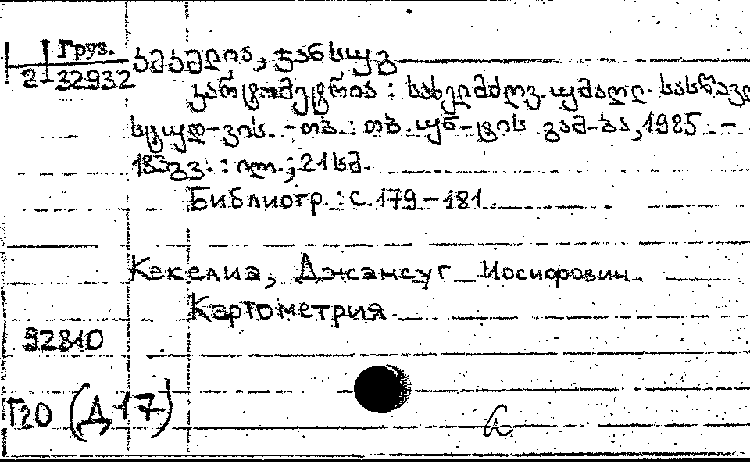 Груз.
2-32932
კეკელია, ჯანსუგ
კარტომეტრია : სახელმძღვ. უმაღლ. სასწავლ
სტუდ-ვის. - თბ. : თბ. უნ-ტის გამ-ბა, 1985. -
183გვ. : ილ. ; 21სმ.
Библиогр. : с. 179-181
Кекелиа, Джансуг Иосифович
Картометрия
92810
Г20 (Д17)